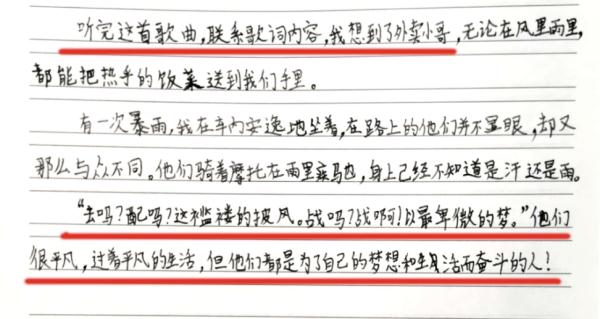 听完这首歌曲，联系歌词内容，我想到了外卖小哥，无论在风里雨里，
都能把热乎的饭菜送到我们手里。
有一次暴雨，我在车内安逸地坐着，在路上的他们并不显眼，却又
那么与众不同。他们骑着摩托在雨里疾驰，身上已经不知道是汗还是雨。
“去吗？配吗？这褴褛的披风。战吗？战啊！以最卑微的梦。”他们
很平凡，过着平凡的生活，但他们都是为了自己的梦想和生活而奋斗的人！